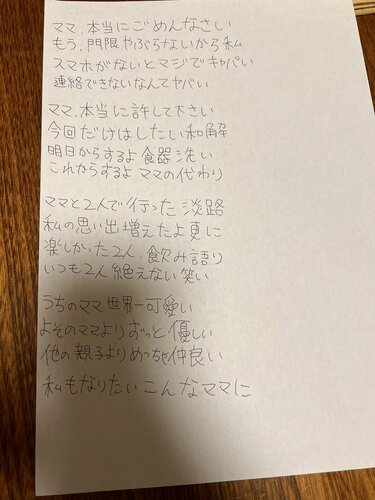 ママ、本当にごめんなさい
もう、門限やぶらないから私
スマホがないとマジでキャパい
連絡できないなんてヤバい
ママ、本当に許して下さい
今回だけはしたい和解
明日からするよ食器洗い
これからするよママの代わり
ママと2人で行った淡路
私の思い出増えたよ更に
楽しかった2人、飲み語り
いつも2人絶えない笑い
うちのママ世界一可愛い
よそのママよりずっと優しい
他の親子よりめっちゃ仲良い
私もなりたいこんなママに